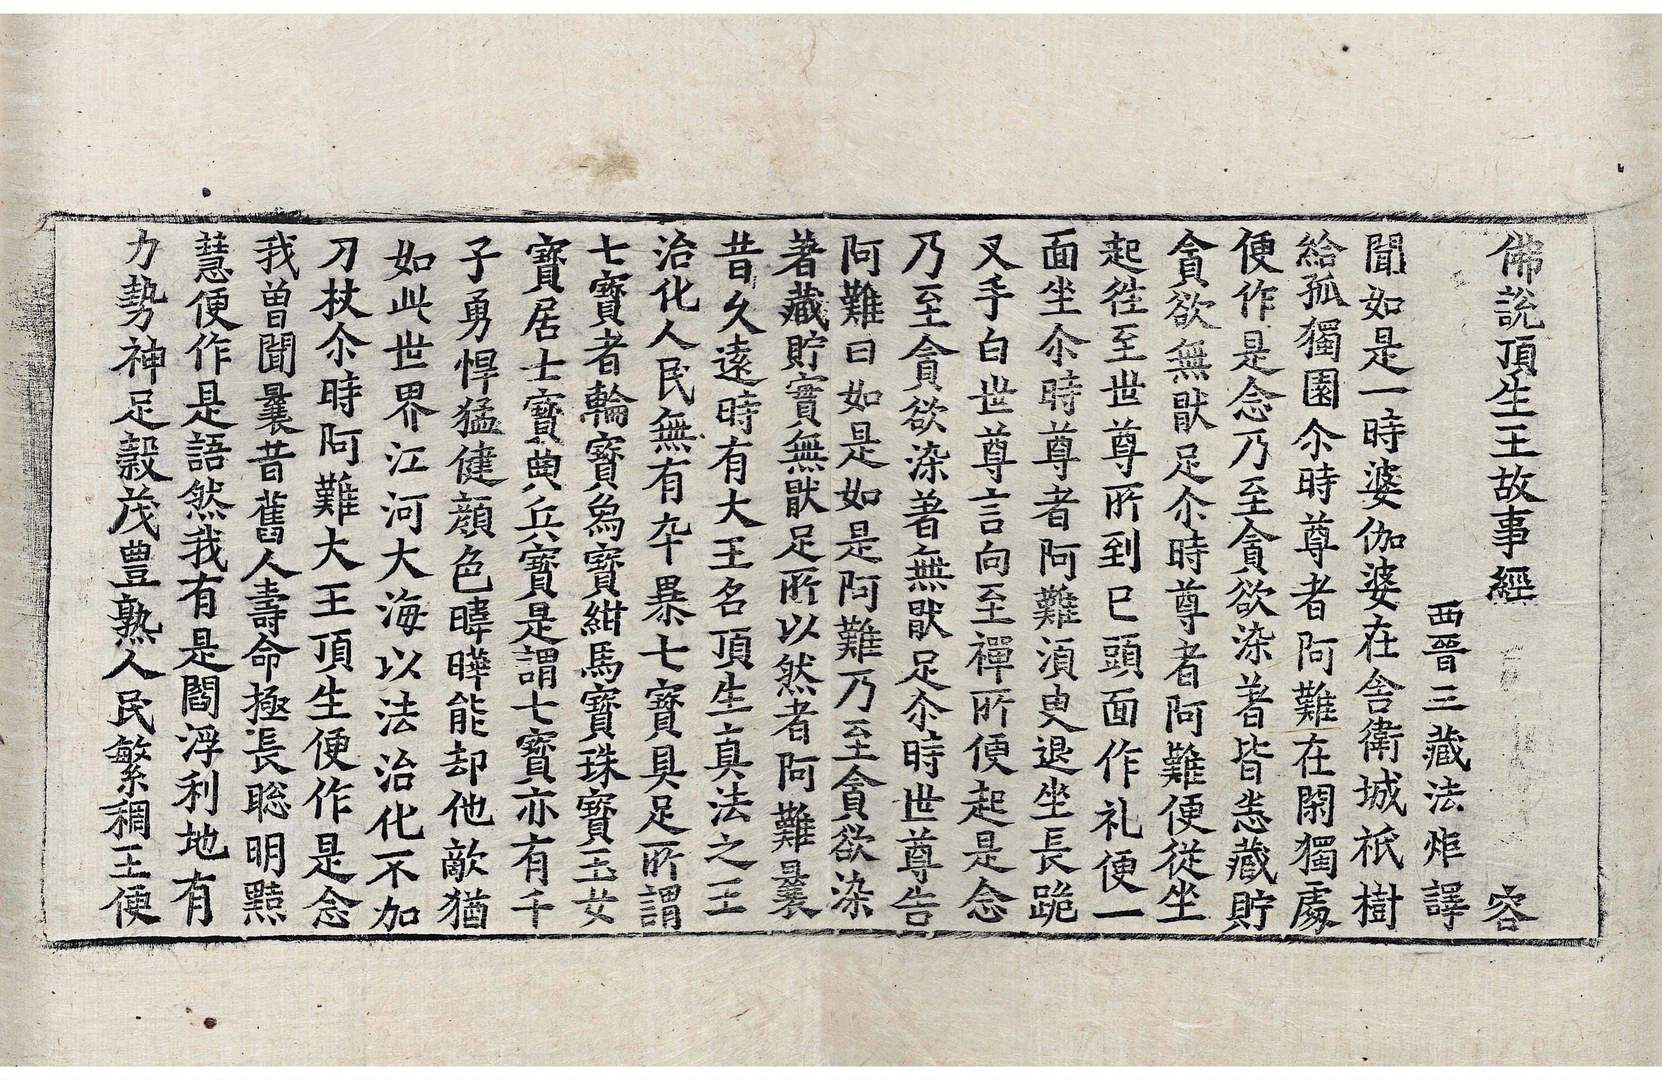 佛說頂生王故事經 容
西晉三藏法炬譯
聞如是一時婆伽婆在舍衛城祇樹
給孤獨園尒時尊者阿難在閑獨處
便作是念乃至貪欲染著皆恚藏貯
貪欲無猒足尒時尊者阿難便從坐
起徃至世尊所到已頭面作礼便一
面坐尒時尊者阿難須臾退坐長跪
叉手白世尊言向至禪所便起是念
乃至貪欲染著無猒足尒時世尊告
阿難曰如是如是阿難乃至貪欲染
著藏貯實無猒足所以然者阿難曩
昔久遠時有大王名頂生真法之王
治化人民無有卒暴七寶具足所謂
七寶者輪寶為寶紺馬寶珠寶玉女
寶居士寶典兵寶是謂七寶亦有千
子勇悍猛健顏色暐曄能却他敵猶
如此世界江河大海以法治化不加
刀杖尒時阿難大王頂生便作是念
我曾聞曩昔舊人壽命極長聡明黠
慧便作是語然我有是閻浮利地有
力勢神足穀茂豊熟人民繁稠王便